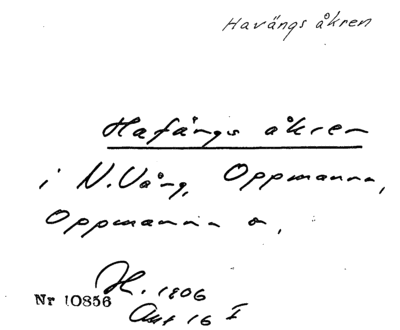 Havängs åkren
Hafängs åkren
i N. Vång, Oppmanna,
Oppmanna s,
H. 1806
Nr 10856
Akt 16 I